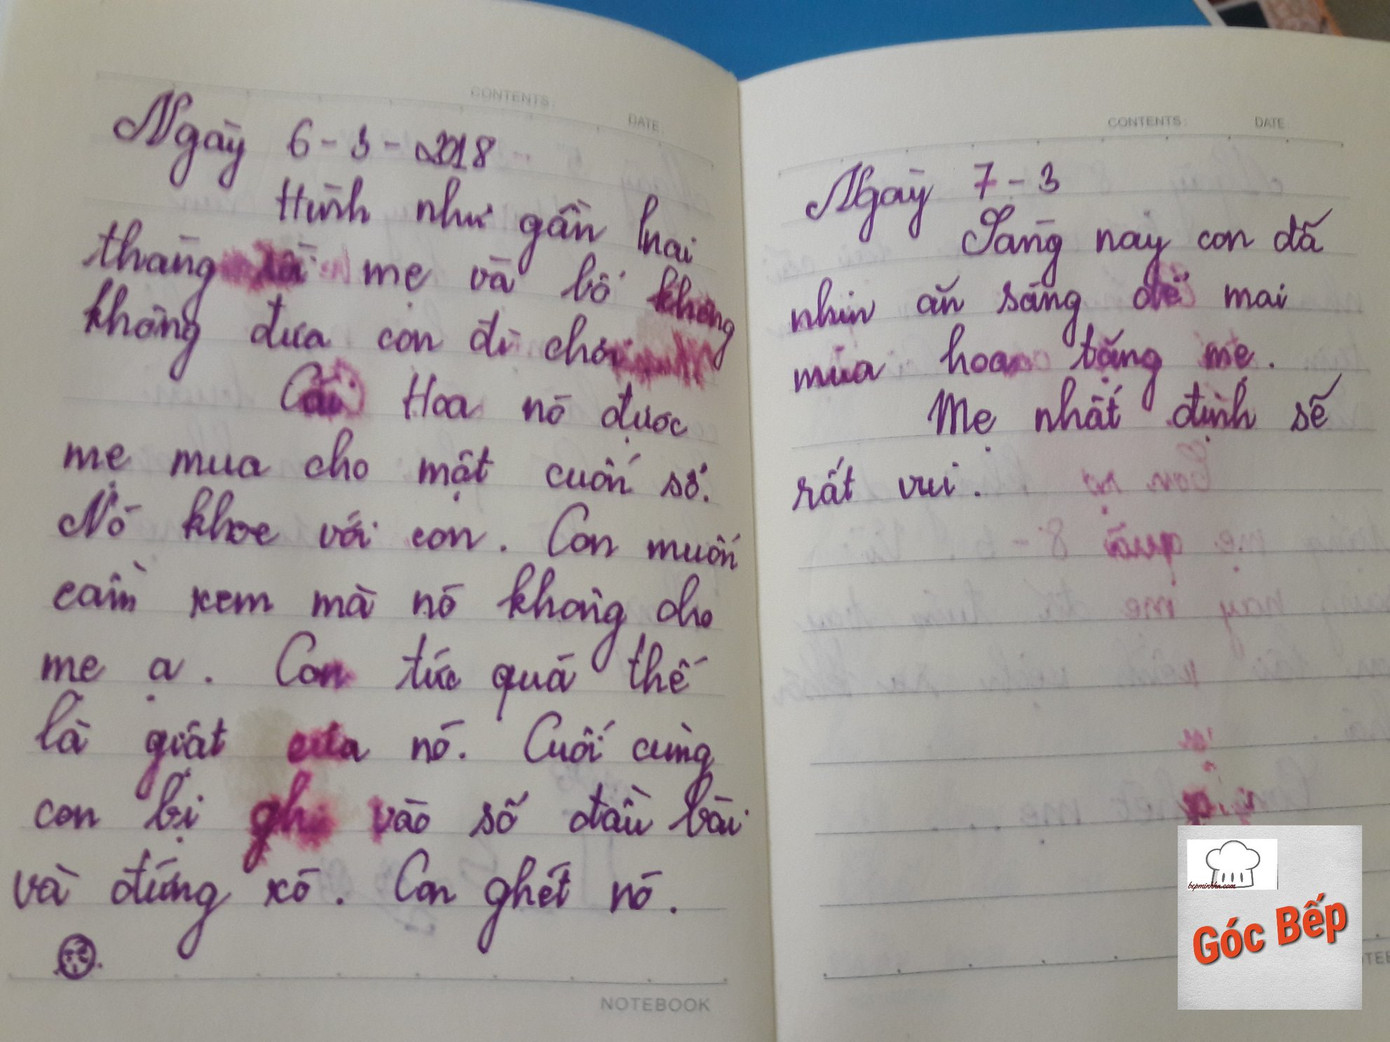 CONTENTS
DATE
Ngày 6-3-2018
Hình như gần hai
tháng rồi mẹ và bố không
không đưa con đi chơi
Cái Hoa nó được
mẹ mua cho một cuốn sổ.
Nó khoe với con. Con muốn
cầm xem mà nó không cho
mẹ ạ. Con tức quá thế
là giật của nó. Cuối cùng
con bị ghi vào sổ đầu bài
và đứng xó. Con ghét nó.
NOTEBOOK
CONTENTS:
DATE:
Ngày 7-3
Sáng nay con đã
nhịn ăn sáng để mai
mua hoa tặng mẹ.
Mẹ nhất định sẽ
rất vui.
bepminhha.com
Góc Bếp